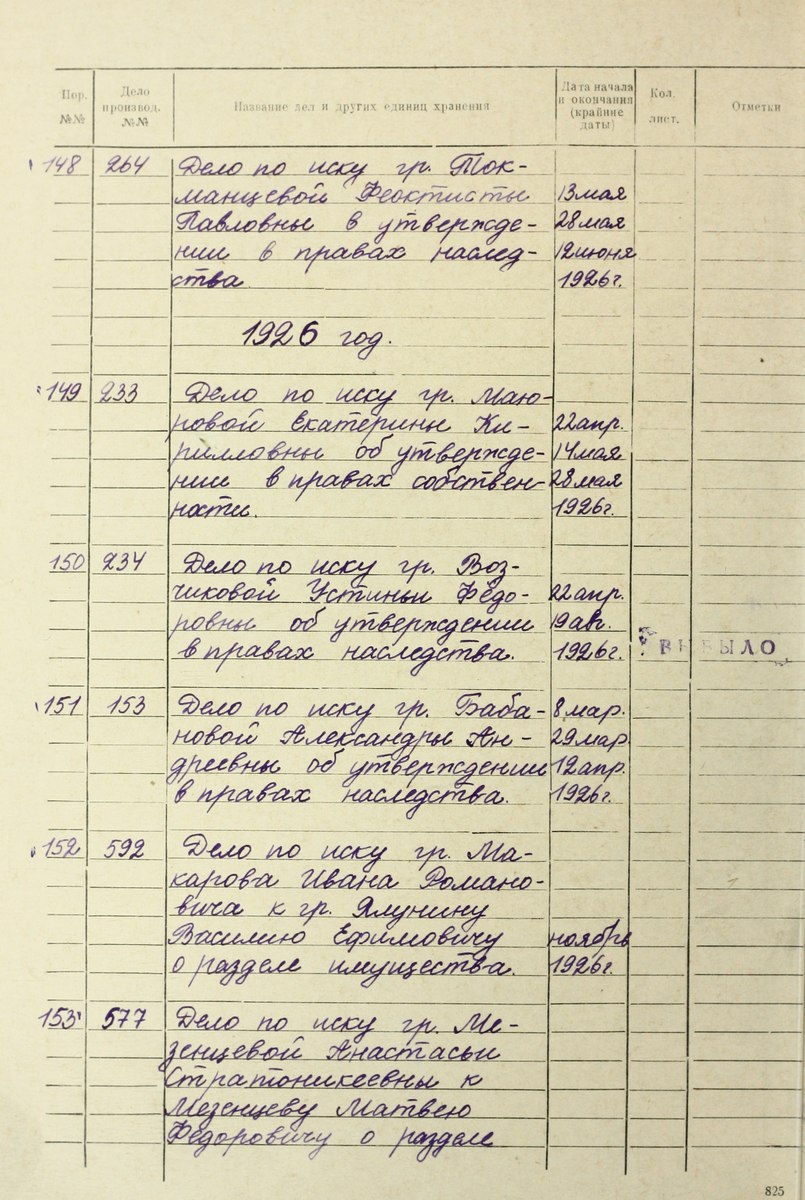 Пор. №№ Дело производ. №№ Название дел и других единиц хранения Дата начала и окончания (крайние даты) Кол. лист. Отметки
148 264 Дело по иску гр. Ток-
манцевой Феоктисты 13 мая
Павловны в утвержде- 28 мая
нии в правах наслед- 12 июня
ства 1926 г.
1926 год.
149 233 Дело по иску гр. Маю-
ровой Екатерины Ки- 22 апр.
рилловны об утвержде- 14 мая
нии в правах собствен- 28 мая
ности. 1926 г.
150 234 Дело по иску гр. Воз-
чиковой Устиньи Федо- 22 апр.
ровны об утверждении 19 авг.
в правах наследства. 1926 г. ВЫБЫЛО
151 153 Дело по иску гр. Баба- 8 мар.
новой Александры Ан- 29 мар.
дреевны об утверждении 12 апр.
в правах наследства. 1926 г.
152 592 Дело по иску гр. Ма-
карова Ивана Романо-
вича к гр. Ялунину
Василию Ефимовичу ноябрь
о разделе имущества. 1926 г.
153 577 Дело по иску гр. Ме-
зенцевой Анастасьи
Стратоникеевны к
Мезенцеву Матвею
Федоровичу о разделе
825